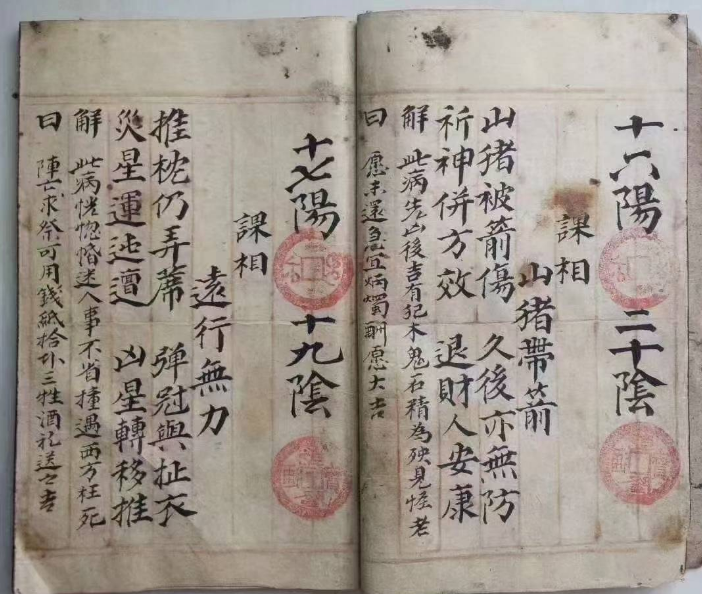 十六陽 二十陰
課相
山猪帶箭
山猪被箭傷 久後亦無防
祈神併方效 退財人安康
解 此病先凶後吉有犯木鬼石精為殃見怪老
曰 愿未還急宜炳燭酬愿大吉
十七陽 十九陰
課相
遠行無力
推枕仍弄蓆 彈冠與扯衣
災星運迍邅 凶星轉移推
解 此病恍惚惛迷人事不省撞遇西方枉死
曰 陣亡求祭可用錢紙拾卦三牲酒礼送之吉